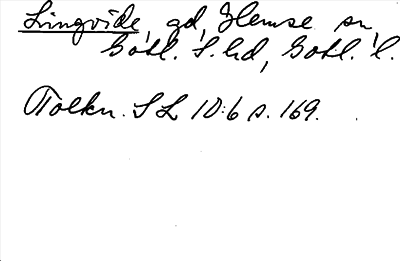 Lingvide, gd, Hemse sn,
Gotl. S. hd, Gotl. l.
Tolkn. SL 10:6 s. 169.